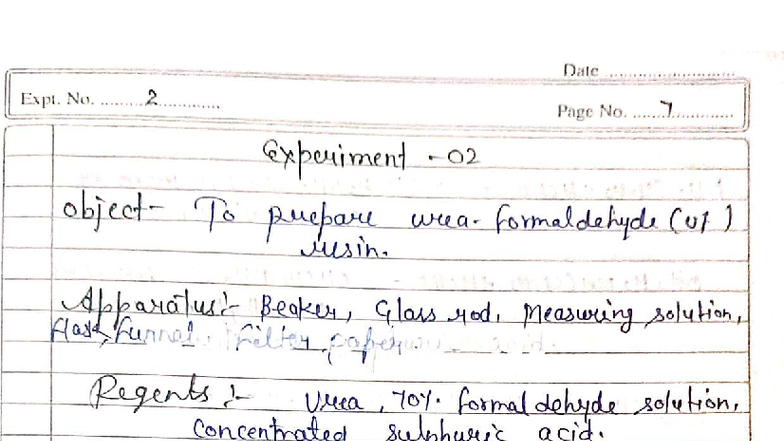 Date
Expt. No. 2
Page No. 7
Experiment - 02
object- To prepare urea- formaldehyde (uf)
resin.
Apparatus:- Beaker, Glass rod, Measuring solution,
flask, funnal, filter paper
Regents :- Urea, 70% formaldehyde solution,
concentrated sulphuric acid.